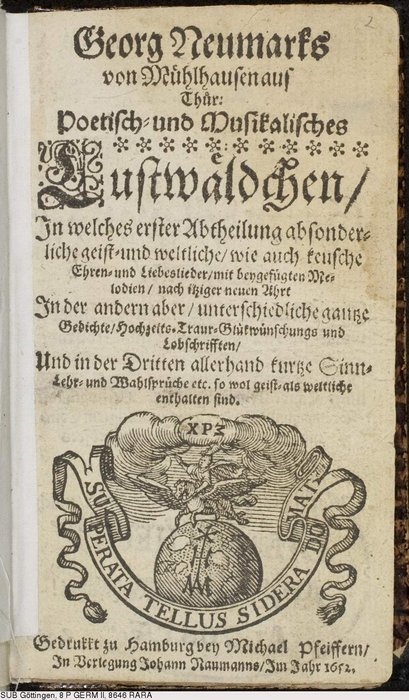 2
Georg Neumarks
von Mühlhausen aus
Thür:
Poetisch- und Musikalisches
Lustwäldchen/
In welches erster Abtheilung absonder-
liche geist- und weltliche/ wie auch keusche
Ehren- und Liebeslieder/ mit beygefügten Me-
lodien/ nach itziger neuen Ahrt
In der andern aber/ unterschiedliche gantze
Gedichte/ Hochzeits-Traur-Glükwünschungs und
Lobschrifften/
Und in der Dritten allerhand kurtze Sinn-
Lehr- und Wahlsprüche etc. so wol geist- als weltliche
enthalten sind.
SUPERATA TELLUS SIDERA DO
Gedrukkt zu Hamburg bey Michael Pfeiffern/
In Verlegung Johann Naumanns/ Im Jahr 1652.
SUB Göttingen, 8 P GERM II, 8646 RARA